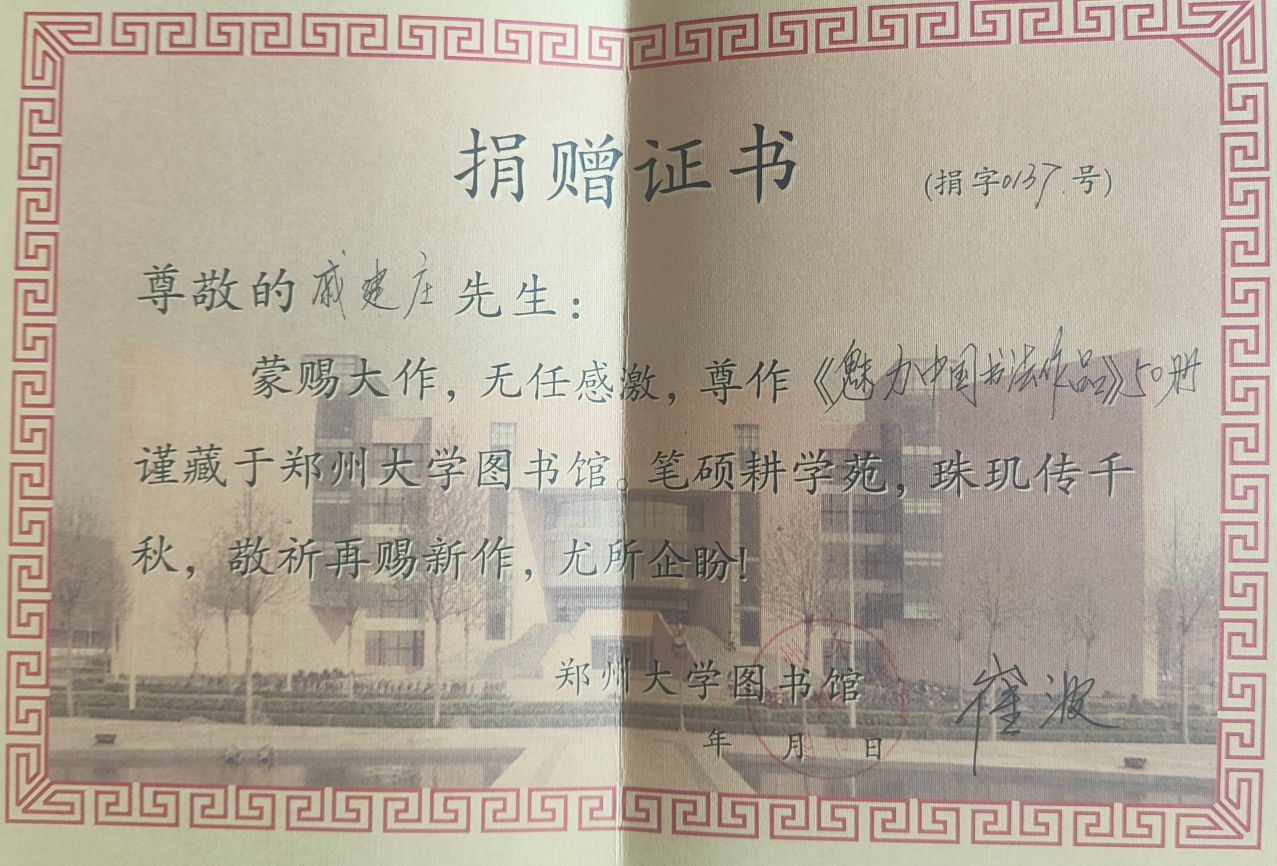 捐赠证书
(捐字0137.号)
尊敬的戚建庄先生：
蒙赐大作，无任感激，尊作《魅力中国书法作品》50册
谨藏于郑州大学图书馆。笔硕耕学苑，珠玑传千
秋，敬祈再赐新作，尤所企盼!
郑州大学图书馆
崔波
年 月 日